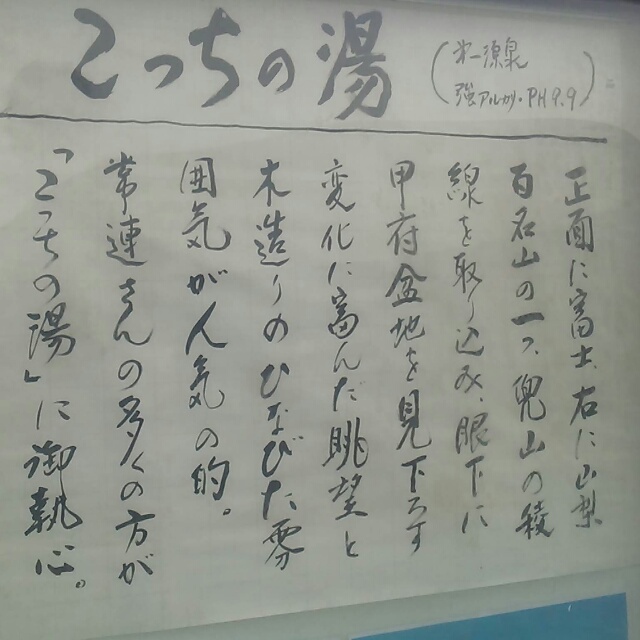 こっちの湯
(第一源泉
強アルカリ・PH9.9)
正面に富士、右に山梨
百名山の一つ、兜山の稜
線を取り込み、眼下に
甲府盆地を見下ろす
変化に富んだ眺望と
木造りのひなびた雰
囲気が人気の的。
常連さんの多くの方が
「こっちの湯」に御執心。